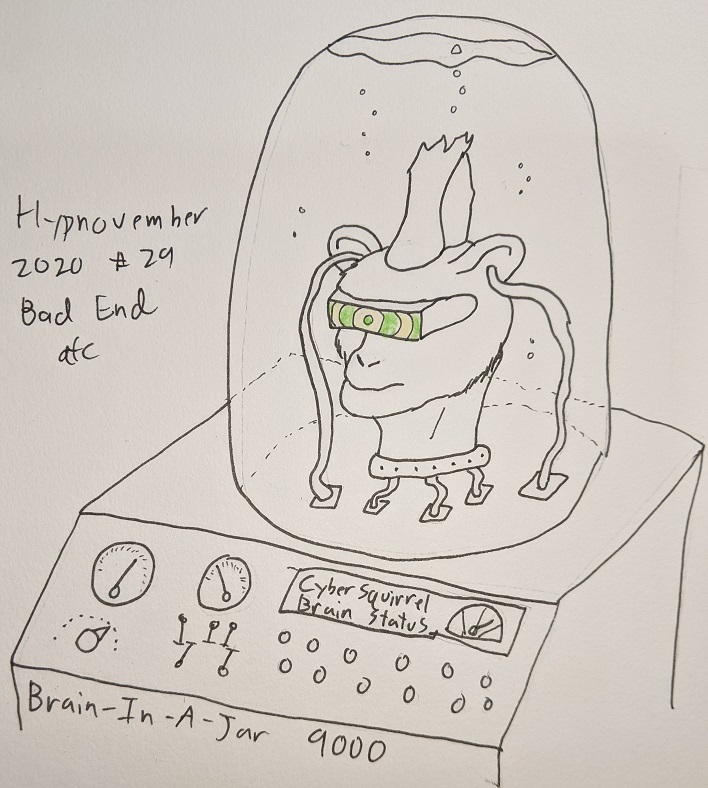 Hypnovember
2020 #29
Bad End
dfc
Cyber Squirrel
Brain Status
Brain-In-A-Jar 9000